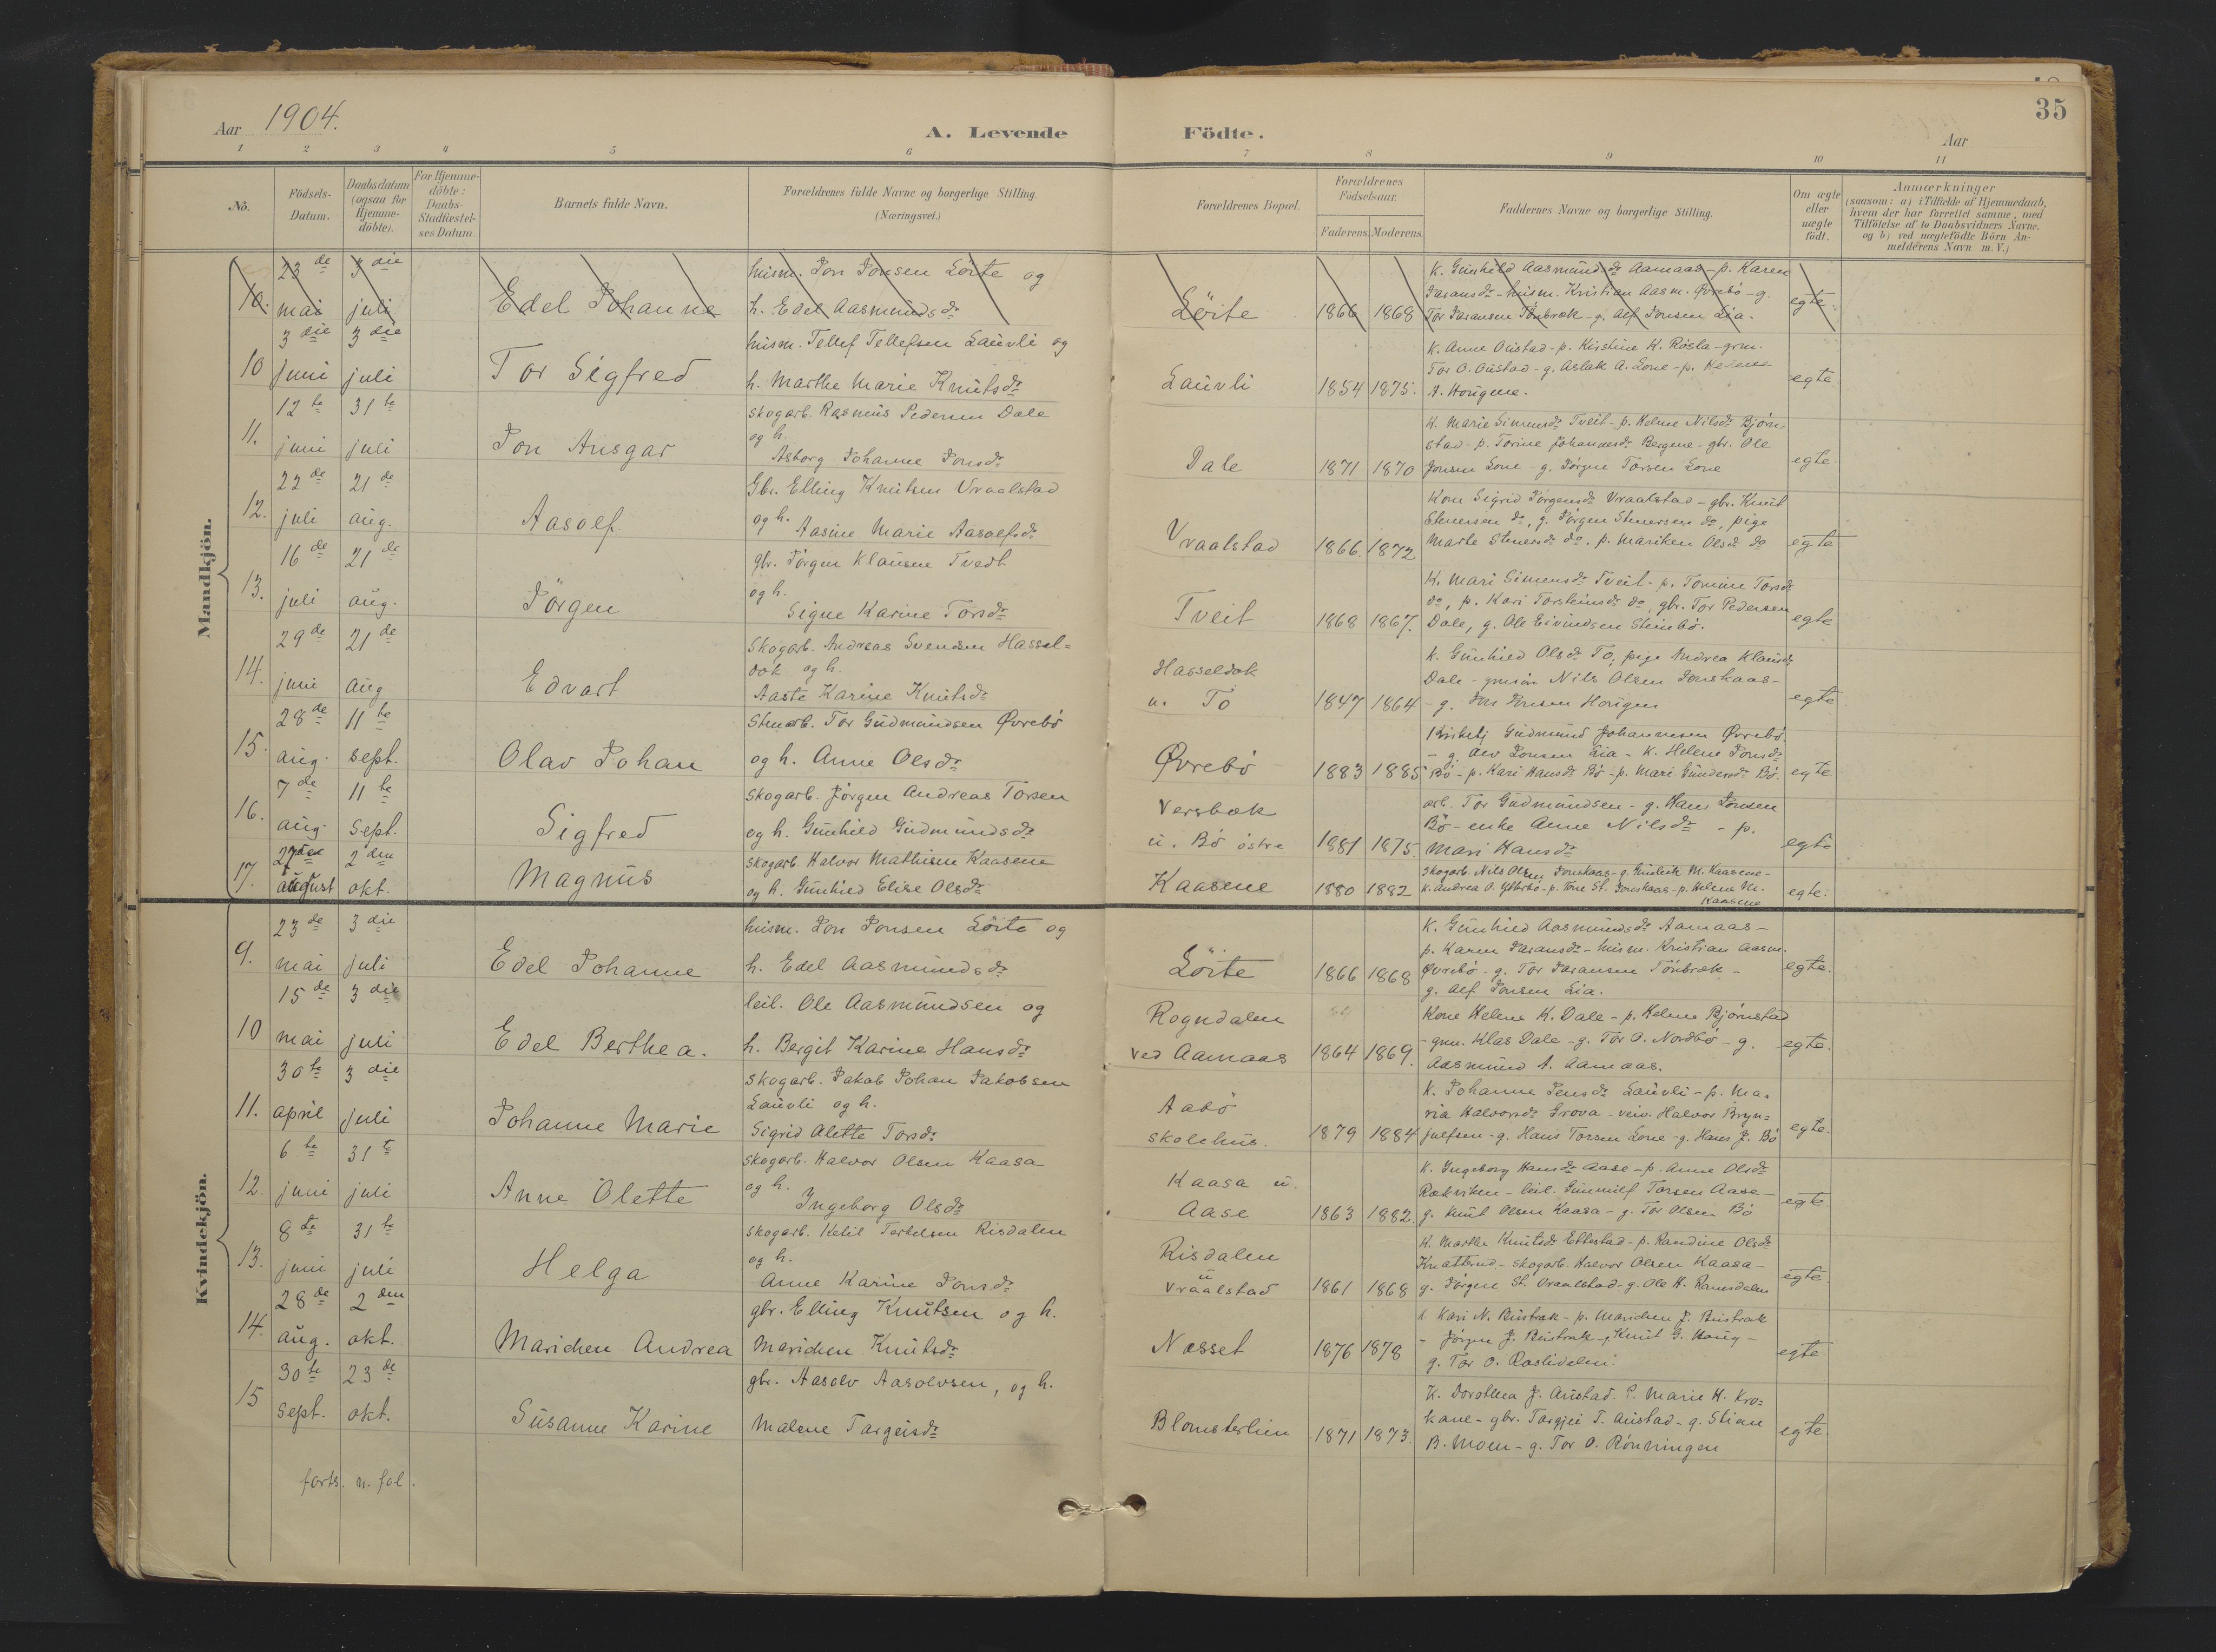 35
Aar 1904.
A. Levende Födte.
Aar
1 2 3 4 5 6 7 8 9 10 11
No.
Födsels-Datum.
Daabsdatum (ogsaa for Hjemme-döbte).
For Hjemme-döbte: Daabs-Stadfæstel-ses Datum.
Barnets fulde Navn.
Forældrenes fulde Navne og borgerlige Stilling.
(Næringsvei.)
Forældrenes Bopæl.
Forældrenes Födselsaar.
Faderens. Moderens.
Faddernes Navne og borgerlige Stilling.
Om ægte eller uægte født.
Anmærkninger
(saasom: a) i Tilfælde af Hjemmedaab,
hvem der har forrettet samme, med
Tilföielse af to Daabsvidners Navne.
og b) ved uægtefödte Börn An-
melderens Navn m. V.)
Mandkjön.
10. 23de mai 3die juli Edel Johanne
husm. Jon Jonsen Löite og
h. Edel Aasmundsdr
Löite 1866 1868
K. Gunhild Aasmundsdr Aamaas - p. Karen
husm. Kristian Aasm. Øvrebö - g.
Tor g. Alf Jonsen Lia.
egte.
10 3die juni 3die juli Tor Sigfred
husm. Tellef Tellefsen Lauvli og
h. Marthe Marie Knutsdr
Lauvli 1854 1875.
K. Anne Oustad - p. Kirstine K. - grm.
Tor O. Oustad - g. Aslak A. Lone - p. Helene
A. Hougene.
egte
11. 12te juni 31te juli Jon Ansgar
skogarb. Rasmus Pedersen Dale
og h.
Asborg Johanne Jonsdr
Dale 1871 1870
K. Marie Simonsdr Tveit - p. Helene Nilsdr Bjørn-
stad - p. Torine Johannesdr Bergene - gbr. Ole
Jonsen Lone - g. Jørgen Torsen Lone
egte
12. 22de juli 21de aug. Aasolf
Gbr. Elling Knutsen Vraalstad
og h. Aasine Marie Aasolfsdr
Vraalstad 1866. 1872
Kone Sigrid Jörgensdr Vraalstad - gbr. Knut
Stenersen do, g. Jörgen Stenersen do, pige
Marte Stenersdr do. p. Mariken Olsdr do
egte
13. 16de juli 21de aug. Jörgen
gbr. Jörgen Klausen Tvedt
og h.
Signe Karine Torsdr
Tveit 1868 1867.
K. Mari Simonsdr Tveit - p. Tomine Torsdr
do, p. Kari Torsteinsdr do, gbr. Tor Pedersen
Dale, g. Ole Eivindsen Steinbö.
egte
14. 29de juni 21de aug Edvart
Skogarb. Andreas Svendsen Hassel=
dok og h.
Aaste Karine Knutsdr
Hasseldok
u. To 1847 1864
K. Gunhild Olsdr To, pige Andrea Klausdr
Dale - gmsön Nils Olsen Jonskaas -
- g. Jon Jonsen Hougen
egte
15. 28de aug. 11te sept. Olav Johan
Stenarb. Tor Gudmundsen Øvrebö
og h. Anne Olsdr
Øvrebö 1883 1885
Kirketj Gudmund Johannesen Øvrebö
- g. Alv Jonsen Lia - K. Helene Jonsdr
Bö - p. Kari Hansdr Bö - p. Mari Gundersdr Bö.
egte
16. 7de aug. 11te sept. Sigfred
skogarb. Jörgen Andreas Torsen
og h. Gunhild Gudmundsdr
Versbæk
u. Bö östre 1881 1875.
arb. Tor Gudmundsen - g. Hans Jonsen
Bö - enke Anne Nilsdr - p.
Mari Hansdr
egte
17. 27de august 2den okt. Magnus
skogarb Halvor Mathisen Kaasene
og h. Gunhild Elise Olsdr
Kaasene 1880 1882
skogarb. Nils Olsen Jonskaas - g. Gunleik M. Kaasene -
K. Andrea O. - p. Tone St. Jonskaas - p. Helene M.
Kaasene
egte.
Kvindekjön.
9. 23de mai 3die juli Edel Johanne
husm. Jon Jonsen Löite og
h. Edel Aasmundsdr
Löite 1866 1868
K. Gunhild Aasmundsdr Aamaas -
p. Karen - husm. Kristian Aasm.
Øvrebö - g. Tor
g. Alf Jonsen Lia.
egte.
10 15de mai 3die juli Edel Berthea.
leil. Ole Aasmundsen og
h. Bergit Karine Hansdr
Rogndalen
ved Aamaas 1864 1869.
Kone Helene K. Dale - p. Helene Bjørnstad
- gm. Klas Dale - g. Tor O. Nordbö - g.
Aasmund A. Aamaas.
egte.
11. 30te april 3die juli Johanne Marie
skogarb. Jakob Johan Jakobsen
Lauvli og h.
Sigrid Alette Torsdr
Aabö
skolehus. 1879 1884
K. Johanne Jensdr Lauvli - p. Ma-
ria Halvorsdr Grova - veiv. Halvor Bryn=
julfsen - g. Hans Torsen Lone - g. Hans J. Bö
egte.
12. 6te juni 31te juli Anne Olette
skogarb. Halvor Olsen Kaasa
og h.
Ingeborg Olsdr
Kaasa u.
Aase 1863 1882.
K. Ingeborg Hansdr Aase - p. Anne Olsdr
Rækviken - leil. Gunnulf Torsen Aase -
g. Knut Olsen Kaasa - g. Tor Olsen Bö
egte
13. 8de juni 31te juli Helga
skogarb. Ketil Terkelsen Risdalen
og h.
Anne Karine Jonsdr
Risdalen
u
Vraalstad 1861 1868
K. Marthe Knutsdr Eltestad - p. Randine Olsdr
Knatterud - skogarb. Halvor Olsen Kaasa -
g. Jörgen St. Vraalstad - g. Ole H. Ramsdalen
egte
14. 28de aug. 2den okt. Marichen Andrea
gbr. Elling Knutsen og h.
Marichen Knutsdr
Næsset 1876 1878
K Kari N. Bustrak - p. Marichen J. Bustrak
- Jörgen J. Bustrak - Knut G. Haug -
g. Tor O.
egte
15 30te sept. 23de okt. Susanne Karine
gbr. Aasolv Aasolvsen, og h.
Malene Targeisdr
Blomsterlien 1871 1873.
K. Dorothea J. Austad. P. Marie H. Kro=
kane - gbr. Targjei T. Austad - g. Stian
B. Moen - g. Tor O. Rönningen
egte.
forts. n. fol.